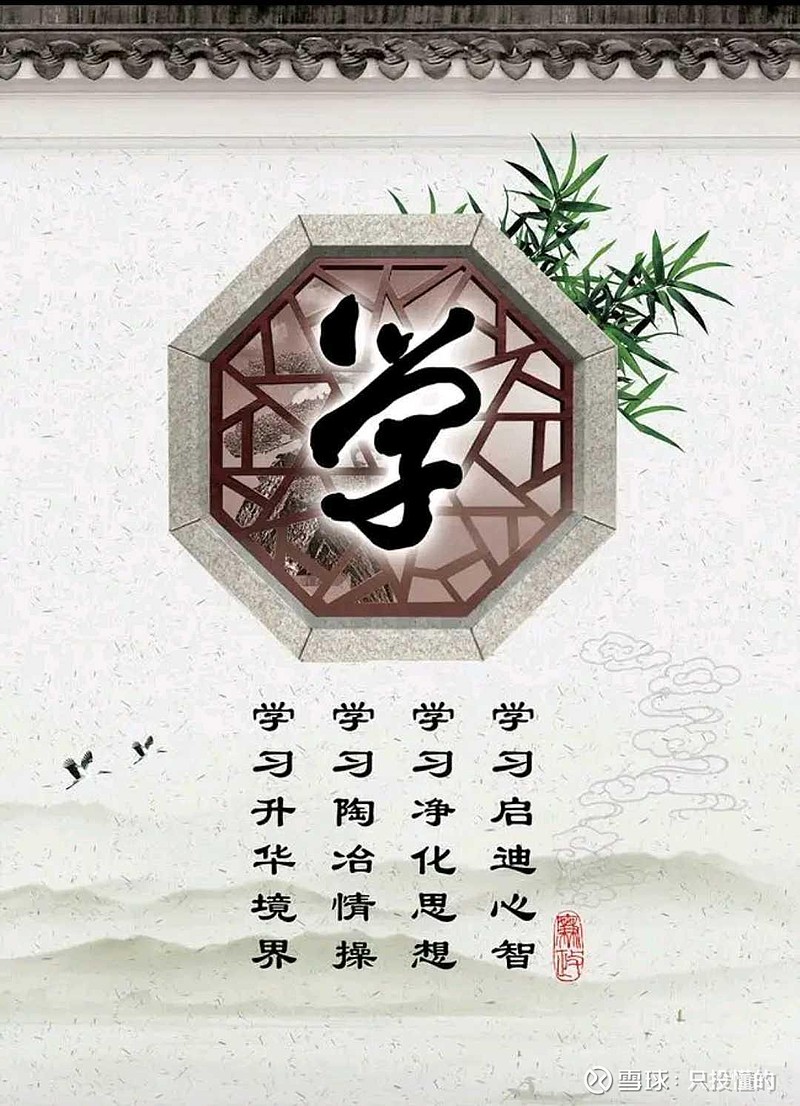 学
学习启迪心智
学习净化思想
学习陶冶情操
学习升华境界
廉政
雪球：只投懂的